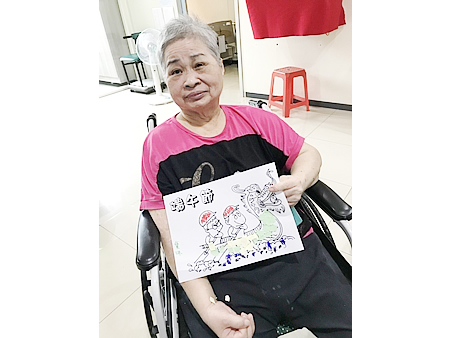 端午節